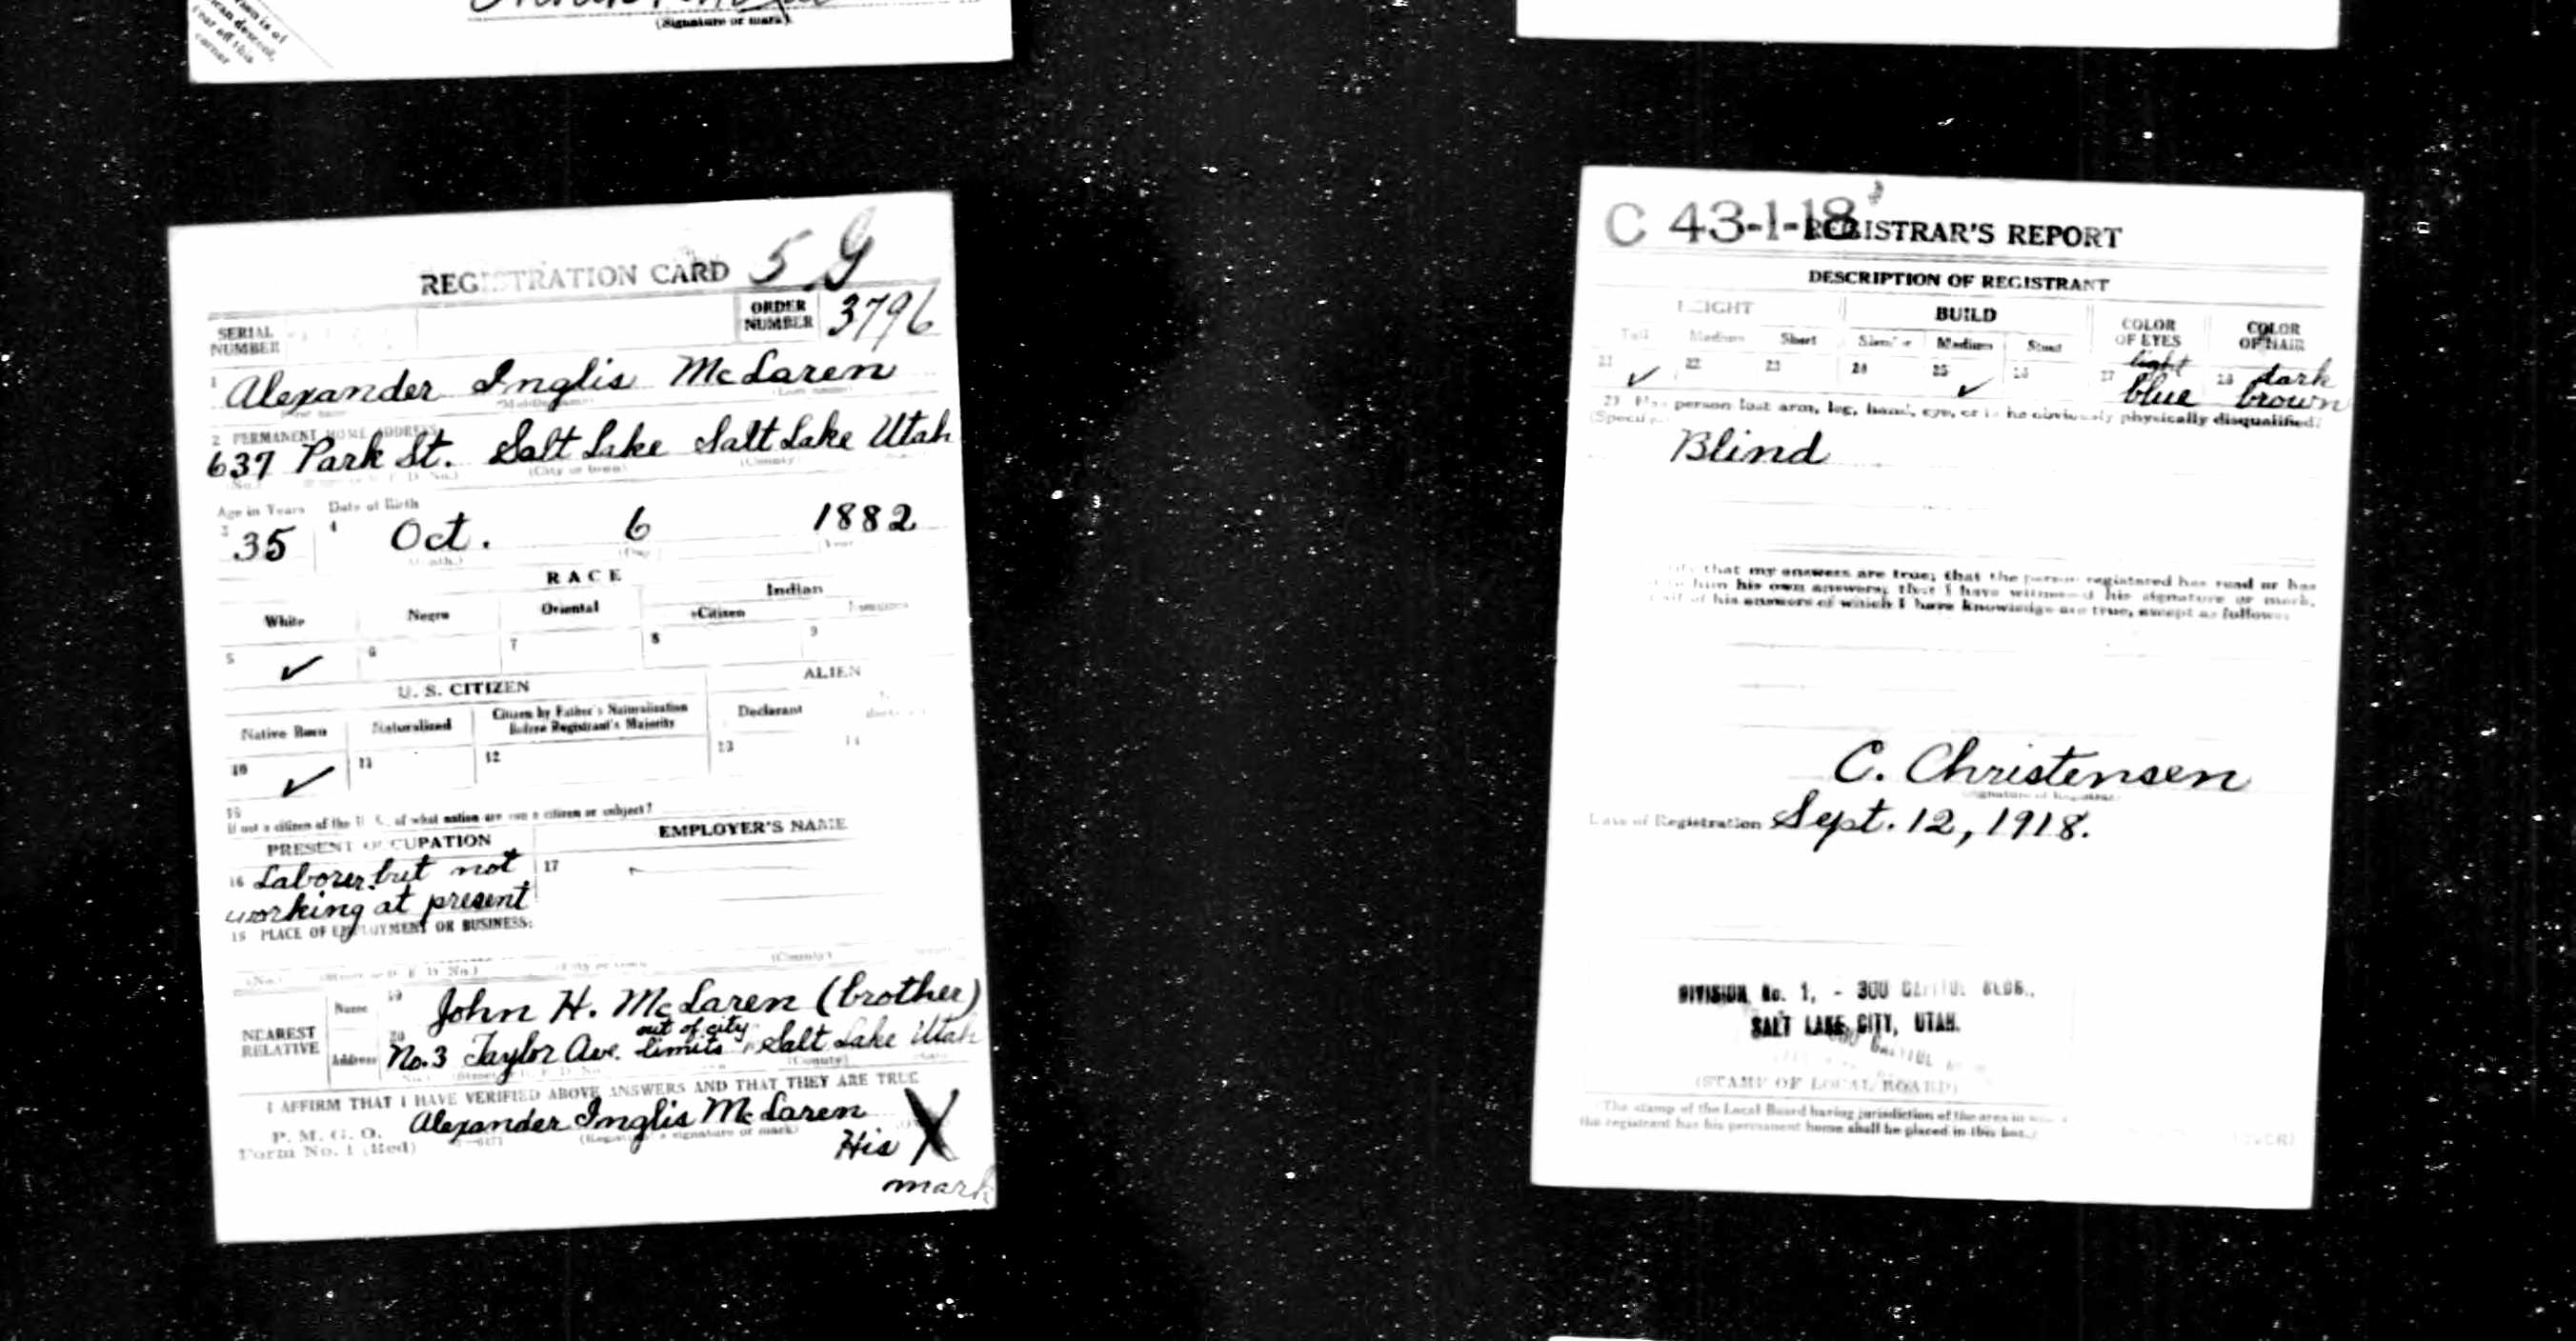 (Signature or mark)
corner
REGISTRATION CARD 5 G
SERIAL NUMBER
ORDER NUMBER 3796
1 Alexander Inglis McLaren
2 PERMANENT HOME ADDRESS
637 Park St. Salt Lake Salt Lake Utah
(No.) (City or town) (County)
Age in Years Date of Birth
3 35 4 Oct. 6 1882
(Day) Year
RACE
White Negro Oriental Indian
Citizen
5 ✓ 6 7 8 9
U. S. CITIZEN ALIEN
Native Born Naturalized Citizen by Father's Naturalization Before Registrant's Majority Declarant
10 ✓ 11 12 13 14
15
If not a citizen of the U. S., of what nation are you a citizen or subject?
PRESENT OCCUPATION EMPLOYER'S NAME
16 Laborer but not 17
working at present
18 PLACE OF EMPLOYMENT OR BUSINESS:
(No.) (County)
NEAREST RELATIVE
Name 19 John H. McLaren (brother)
Address 20 No. 3 Taylor Ave. out of city limits Salt Lake Utah
I AFFIRM THAT I HAVE VERIFIED ABOVE ANSWERS AND THAT THEY ARE TRUE
Alexander Inglis McLaren
P. M. G. O.
Form No. 1 (Red) (Registrant's signature or mark)
His X
mark
C 43-1-18 REGISTRAR'S REPORT
DESCRIPTION OF REGISTRANT
HEIGHT BUILD COLOR OF EYES COLOR OF HAIR
Tall Medium Short Slender Medium Stout
21 ✓ 22 23 24 25 ✓ 26 27 light blue 28 dark brown
29 Has person lost arm, leg, hand, eye, or is he obviously physically disqualified?
(Specify.)
Blind
that my answers are true; that the person registered has read or has
him his own answers; that I have witnessed his signature or mark,
of his answers of which I have knowledge are true, except as follows:
C. Christensen
(Signature of Registrar)
Date of Registration Sept. 12, 1918.
DIVISION No. 1, - 300 CAPITOL BLDG.,
SALT LAKE CITY, UTAH.
(STAMP OF LOCAL BOARD)
(The stamp of the Local Board having jurisdiction of the area in which
the registrant has his permanent home shall be placed in this box.)
(OVER)